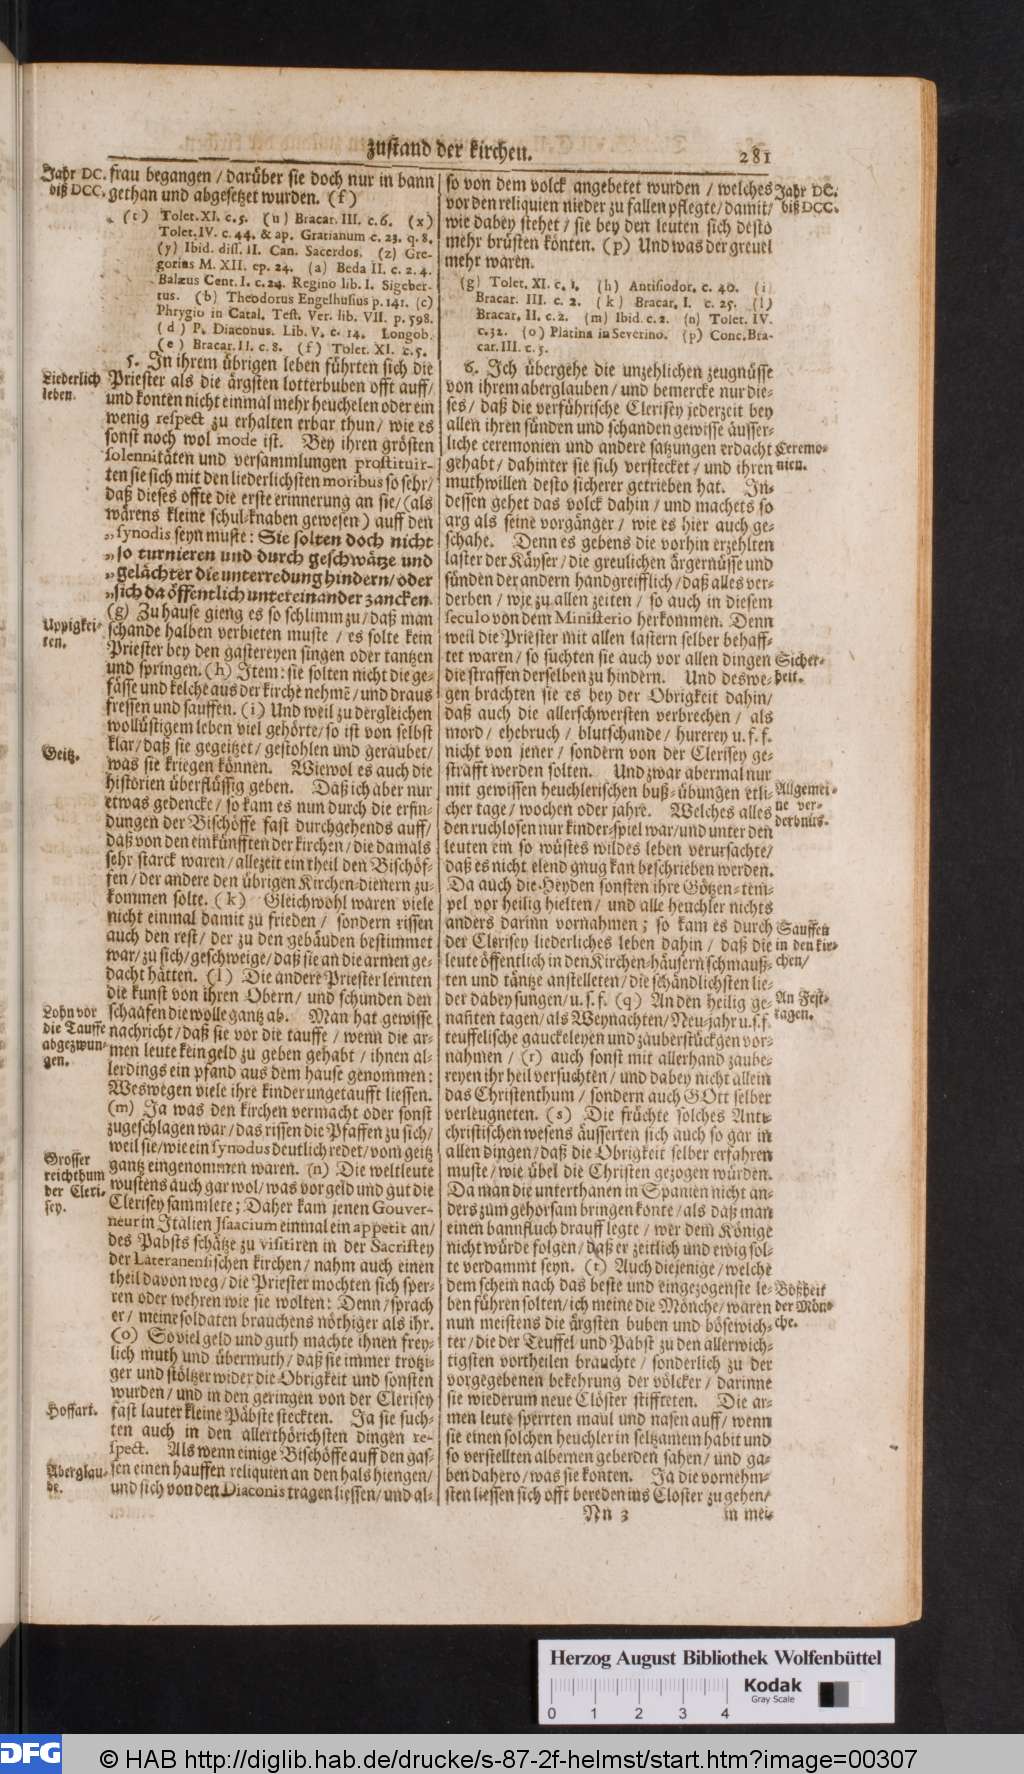 Zustand der kirchen.
281
Jahr DC.
biß DCC.
frau begangen / darüber sie doch nur in bann
gethan und abgesetzet wurden. (f)
(t) Tolet. XI. c. 5. (u) Bracar. III. c. 6. (x)
Tolet. IV. c. 44. & ap. Gratianum c. 23. q. 8.
(y) Ibid. diss. II. Can. Sacerdos. (z) Gre-
gorius M. XII. ep. 24. (a) Beda II. c. 2. 4.
Balæus Cent. I. c. 24. Regino lib. I. Sigeber-
tus. (b) Theodorus Engelhusius p. 141. (c)
Phrygio in Catal. Test. Ver. lib. VII. p. 598.
(d) P. Diaconus. Lib. V. c. 14. Longob.
(e) Bracar. II. c. 8. (f) Tolet. XI. c. 5.
Liederlich
leben.
5. In ihrem übrigen leben führten sich die
Priester als die ärgsten lotterbuben offt auff/
und konten nicht einmal mehr heuchelen oder ein
wenig respect zu erhalten erbar thun/ wie es
sonst noch wol mode ist. Bey ihren grösten
solennitäten und versammlungen prostituir-
ten sie sich mit den liederlichsten moribus so sehr/
daß dieses offte die erste erinnerung an sie/ (als
wärens kleine schul-knaben gewesen) auff den
„synodis seyn muste: Sie solten doch nicht
„so turnieren und durch geschwätze und
„gelächter die unterredung hindern/ oder
„sich da öffentlich untereinander zancken.
Uppigkei-
ten.
(g) Zu hause gieng es so schlimm zu/ daß man
schande halben verbieten muste / es solte kein
Priester bey den gastereyen singen oder tantzen
und springen. (h) Item: sie solten nicht die ge-
fässe und kelche aus der kirche nehmē/ und draus
fressen und sauffen. (i) Und weil zu dergleichen
wollüstigem leben viel gehörte/ so ist von selbst
Geitz.
klar/ daß sie gegeitzet/ gestohlen und geraubet/
was sie kriegen können. Wiewol es auch die
historien überflüssig geben. Daß ich aber nur
etwas gedencke/ so kam es nun durch die erfin-
dungen der Bischöffe fast durchgehends auff/
daß von den einkünfften der kirchen/ die damals
sehr starck waren/ allezeit ein theil den Bischöf-
fen/ der andere den übrigen Kirchen-dienern zu-
kommen solte. (k) Gleichwohl waren viele
nicht einmal damit zu frieden / sondern rissen
auch den rest/ der zu den gebäuden bestimmet
war/ zu sich/ geschweige/ daß sie an die armen ge-
dacht hätten. (l) Die andere Priester lernten
die kunst von ihren Obern/ und schunden den
Lohn vor
die Tauffe
abgezwun-
gen.
schaafen die wolle gantz ab. Man hat gewisse
nachricht/ daß sie vor die tauffe / wenn die ar-
men leute kein geld zu geben gehabt / ihnen al-
lerdings ein pfand aus dem hause genommen:
Weswegen viele ihre kinder ungetaufft liessen.
(m) Ja was den kirchen vermacht oder sonst
zugeschlagen war/ das rissen die Pfaffen zu sich/
weil sie/ wie ein synodus deutlich redet/ vom geitz
Grosser
reichthum
der Cleri-
sey.
gantz eingenommen waren. (n) Die weltleute
wustens auch gar wol/ was vor geld und gut die
Clerisey sammlete; Daher kam jenen Gouver-
neur in Italien Isaacium einmal ein appetit an/
des Pabsts schätze zu visitiren in der Sacristey
der Lateranensischen kirchen/ nahm auch einen
theil davon weg/ die Priester mochten sich sper-
ren oder wehren wie sie wolten: Denn/ sprach
er/ meine soldaten brauchens nöthiger als ihr.
(o) So viel geld und guth machte ihnen frey-
lich muth und übermuth/ daß sie immer trotzi-
ger und stöltzer wider die Obrigkeit und sonsten
wurden/ und in den geringen von der Clerisey
Hoffart.
fast lauter kleine Päbste steckten. Ja sie such-
ten auch in den allerthörichsten dingen re-
spect. Als wenn einige Bischöffe auff den gas-
Aberglau-
be.
sen einen hauffen reliquien an den hals hiengen/
und sich von den Diaconis tragen liessen/ und al-
so von dem volck angebetet wurden / welches
vor den reliquien nieder zu fallen pflegte/ damit/
wie dabey stehet / sie bey den leuten sich desto
mehr brüsten könten. (p) Und was der greuel
mehr waren.
Jahr DC.
biß DCC.
(g) Tolet. XI. c. 1. (h) Antisiodor. c. 40. (i)
Bracar. III. c. 2. (k) Bracar. I. c. 25. (l)
Bracar. II. c. 2. (m) Ibid. c. 2. (n) Tolet. IV.
c. 32. (o) Platina in Severino. (p) Conc. Bra-
car. III. c. 5.
6. Ich übergehe die unzehlichen zeugnüsse
von ihrem aberglauben/ und bemercke nur die-
ses/ daß die verführische Clerisey jederzeit bey
allen ihren sünden und schanden gewisse äusser-
liche ceremonien und andere satzungen erdacht
Ceremo-
nien.
gehabt/ dahinter sie sich verstecket / und ihren
muthwillen desto sicherer getrieben hat. In-
dessen gehet das volck dahin/ und machets so
arg als seine vorgänger / wie es hier auch ge-
schahe. Denn es gebens die vorhin erzehlten
laster der Käyser/ die greulichen ärgernüsse und
sünden der andern handgreifflich/ daß alles ver-
derben / wie zu allen zeiten / so auch in diesem
seculo von dem Ministerio herkommen. Denn
weil die Priester mit allen lastern selber behaff-
tet waren / so suchten sie auch vor allen dingen
Sicher-
heit.
die straffen derselben zu hindern. Und deswe-
gen brachten sie es bey der Obrigkeit dahin/
daß auch die allerschwersten verbrechen / als
mord / ehebruch / blutschande / hurerey u. s. f.
nicht von jener / sondern von der Clerisey ge-
strafft werden solten. Und zwar abermal nur
mit gewissen heuchlerischen buß-übungen etli-
cher tage/ wochen oder jahre. Welches alles
Allgemei-
ne ver-
derbnüs.
den ruchlosen nur kinder-spiel war/ und unter den
leuten ein so wüstes wildes leben verursachte/
daß es nicht elend gnug kan beschrieben werden.
Da auch die Heyden sonsten ihre Götzen-tem-
pel vor heilig hielten/ und alle heuchler nichts
anders darinn vornahmen; so kam es durch
der Clerisey liederliches leben dahin / daß die
Sauffen
in den kir-
chen/
leute öffentlich in den Kirchen-häusern schmauß-
ten und täntze anstelleten/ die schändlichsten lie-
der dabey sungen/ u. s. f. (q) An den heilig ge-
An Fest-
tagen.
nañten tagen/ als Weynachten/ Neu-jahr u. s. f.
teuffelische gauckeleyen und zauberstückgen vor-
nahmen / (r) auch sonst mit allerhand zaube-
reyen ihr heil versuchten/ und dabey nicht allein
das Christenthum / sondern auch GOtt selber
verleugneten. (s) Die früchte solches Anti-
christischen wesens äusserten sich auch so gar in
allen dingen/ daß die Obrigkeit selber erfahren
muste/ wie übel die Christen gezogen würden.
Da man die unterthanen in Spanien nicht an-
ders zum gehorsam bringen konte/ als daß man
einen bannfluch drauff legte/ wer dem Könige
nicht würde folgen/ daß er zeitlich und ewig sol-
te verdammt seyn. (t) Auch diejenige/ welche
dem schein nach das beste und eingezogenste le-
ben führen solten/ ich meine die Mönche/ waren
Boßheit
der Mön-
che.
nun meistens die ärgsten buben und bösewich-
ter/ die der Teuffel und Pabst zu den allerwich-
tigsten vortheilen brauchte/ sonderlich zu der
vorgegebenen bekehrung der völcker / darinne
sie wiederum neue Clöster stiffteten. Die ar-
men leute sperrten maul und nasen auff/ wenn
sie einen solchen heuchler in seltzamem habit und
so verstellten albernen geberden sahen/ und ga-
ben dahero/ was sie konten. Ja die vornehm-
sten liessen sich offt bereden ins Closter zu gehen/
Nn 3
in mei-
Herzog August Bibliothek Wolfenbüttel
0 1 2 3 4
Kodak
Gray Scale
DFG
© HAB http://diglib.hab.de/drucke/s-87-2f-helmst/start.htm?image=00307